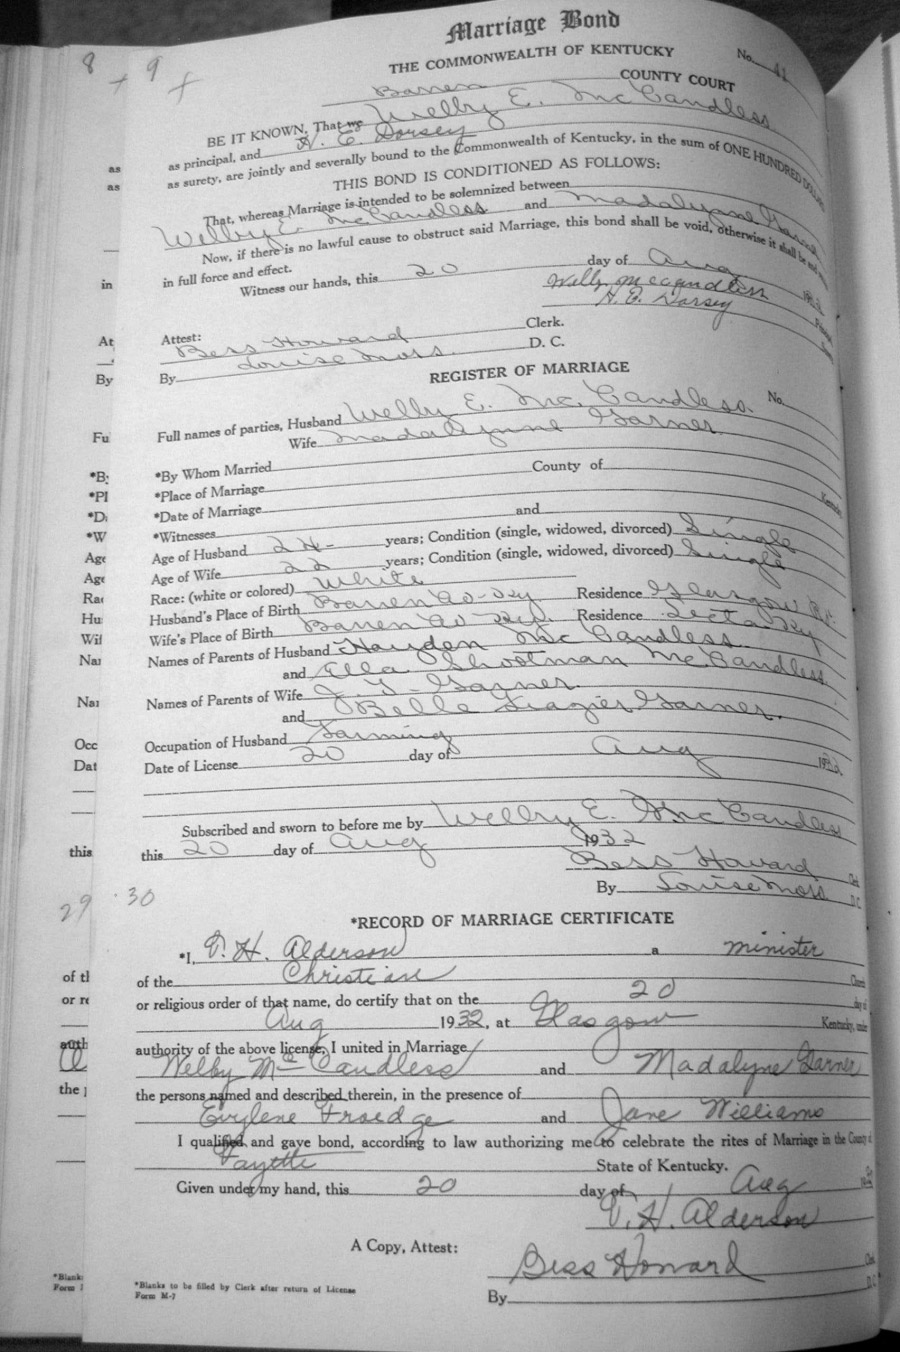 8 9
Marriage Bond
THE COMMONWEALTH OF KENTUCKY
No. 41
Barren COUNTY COURT
BE IT KNOWN, That we Welby E. Mc Candless
as principal, and H. E. Dorsey
as surety, are jointly and severally bound to the Commonwealth of Kentucky, in the sum of ONE HUNDRED DOLLARS
THIS BOND IS CONDITIONED AS FOLLOWS:
That, whereas Marriage is intended to be solemnized between
Welby E. McCandless and Madalynne Garner
Now, if there is no lawful cause to obstruct said Marriage, this bond shall be void, otherwise it shall be and
in full force and effect.
Witness our hands, this 20 day of Aug 1932
Welby McCandless
H. E. Dorsey
Attest:
Bess Howard Clerk.
By Louise Moss. D. C.
REGISTER OF MARRIAGE
No.
Full names of parties, Husband Welby E. Mc. Candless.
Wife Madalynne Garner
*By Whom Married
*Place of Marriage County of Kentucky
*Date of Marriage
*Witnesses and
Age of Husband 24 years; Condition (single, widowed, divorced) Single
Age of Wife 22 years; Condition (single, widowed, divorced) Single
Race: (white or colored) White
Husband's Place of Birth Barren Co-Ky Residence Glasgow
Wife's Place of Birth Barren Co Ky. Residence Ky
Names of Parents of Husband Hayden Mc Candless
and Ella Shootman McCandless.
Names of Parents of Wife J. T. Garner.
and Belle Frazier Garner.
Occupation of Husband Farming
Date of License 20 day of Aug 1932
Subscribed and sworn to before me by Welby E. McCandless
this 20 day of Aug 1932
Bess Howard Clerk
By Louise Moss D. C.
29 30
*RECORD OF MARRIAGE CERTIFICATE
*I, V. H. Alderson a minister
of the Christian Church
or religious order of that name, do certify that on the 20 day of
Aug 1932, at Glasgow Kentucky, under
authority of the above license, I united in Marriage
Welby McCandless and Madalyne Garner
the persons named and described therein, in the presence of
Evylene Froedge and Jane Williams
I qualified and gave bond, according to law authorizing me to celebrate the rites of Marriage in the County of
Fayette State of Kentucky.
Given under my hand, this 20 day of Aug
V. H. Alderson
A Copy, Attest:
Bess Howard Clerk
By D. C.
*Blanks to be filled by Clerk after return of License
Form M-7